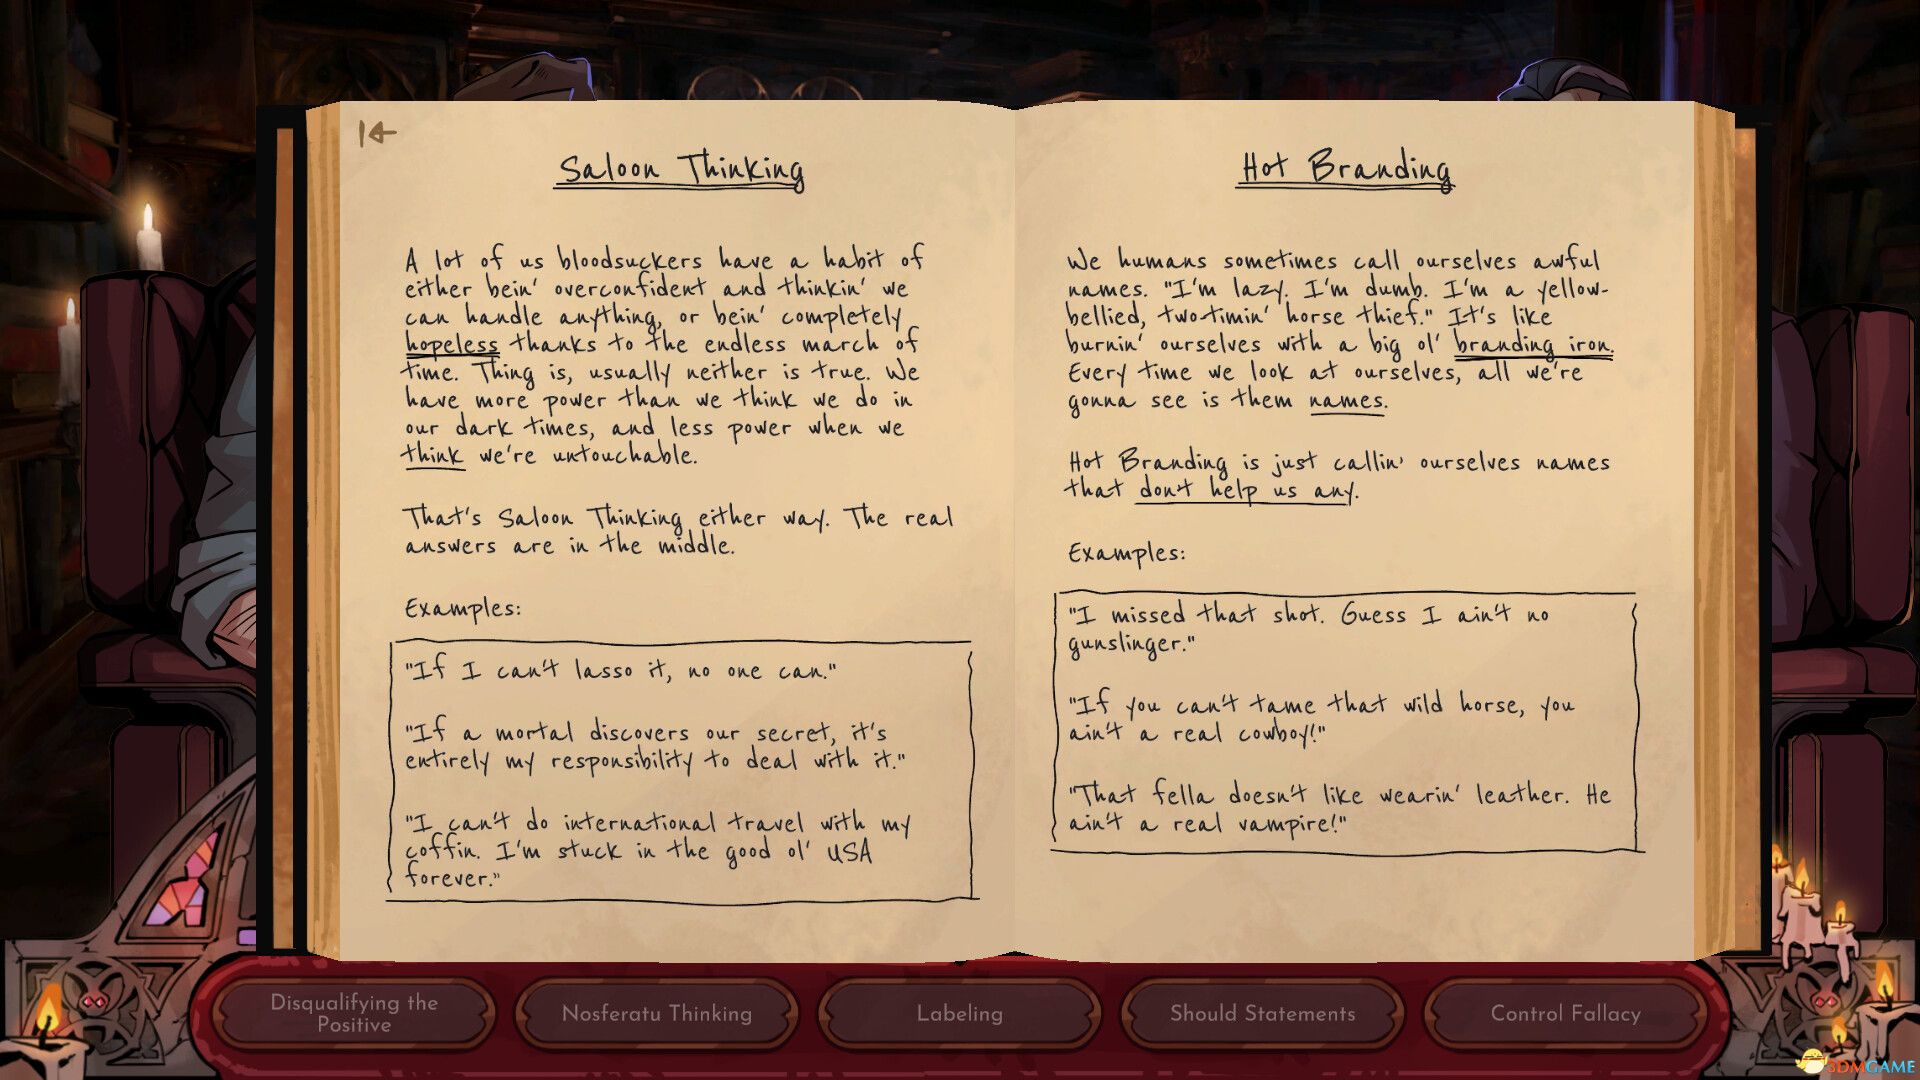 Saloon Thinking
A lot of us bloodsuckers have a habit of
either bein' overconfident and thinkin' we
can handle anything, or bein' completely
hopeless thanks to the endless march of
time. Thing is, usually neither is true. We
have more power than we think we do in
our dark times, and less power when we
think we're untouchable.
That's Saloon Thinking either way. The real
answers are in the middle.
Examples:
"If I can't lasso it, no one can."
"If a mortal discovers our secret, it's
entirely my responsibility to deal with it."
"I can't do international travel with my
coffin. I'm stuck in the good ol' USA
forever."
Hot Branding
We humans sometimes call ourselves awful
names. "I'm lazy. I'm dumb. I'm a yellow-
bellied, two-timin' horse thief." It's like
burnin' ourselves with a big ol' branding iron.
Every time we look at ourselves, all we're
gonna see is them names.
Hot Branding is just callin' ourselves names
that don't help us any.
Examples:
"I missed that shot. Guess I ain't no
gunslinger."
"If you can't tame that wild horse, you
ain't a real cowboy!"
"That fella doesn't like wearin' leather. He
ain't a real vampire!"
Disqualifying the
Positive
Nosferatu Thinking
Labeling
Should Statements
Control Fallacy
3DMGAME